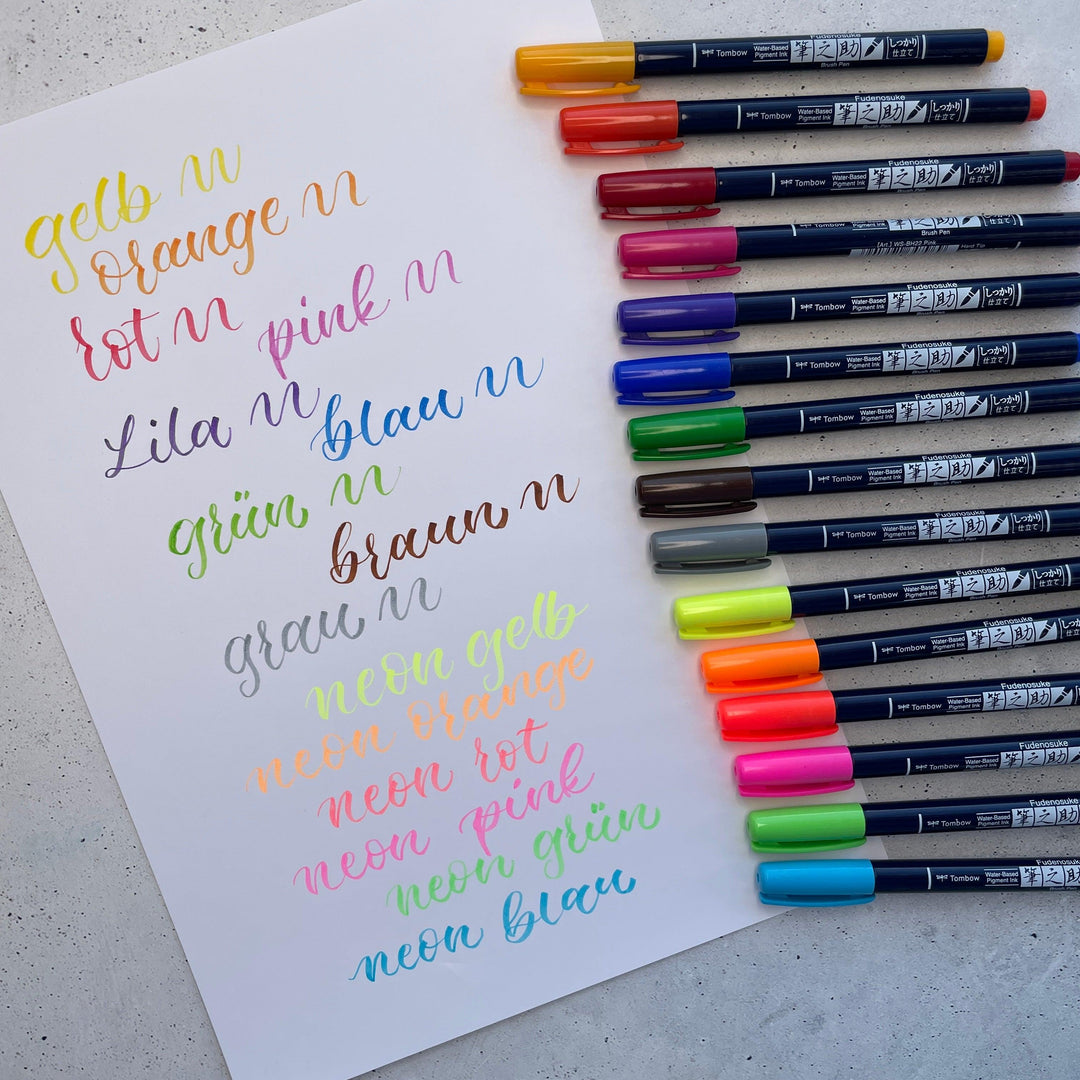 gelb
orange
rot
pink
Lila
blau
grün
braun
grau
neon gelb
neon orange
neon rot
neon pink
neon grün
neon blau
Tombow Water-Based Pigment Ink Fudenosuke 筆之助 Brush Pen しっかり仕立て
Tombow Water-Based Pigment Ink Fudenosuke 筆之助 Brush Pen しっかり仕立て
Tombow Water-Based Pigment Ink Fudenosuke 筆之助 Brush Pen しっかり仕立て
Tombow Water-Based Pigment Ink 筆之助 しっかり仕立て
Brush Pen
[Art.] WS-BH22 Pink Hard Tip
Tombow Water-Based Pigment Ink Fudenosuke 筆之助 しっかり仕立て
Tombow Water-Based Pigment Ink Fudenosuke 筆之助 Brush Pen しっかり仕立て
Tombow Water-Based Pigment Ink Fudenosuke 筆之助 しっかり仕立て
Tombow Water-Based Pigment Ink Fudenosuke 筆之助 しっかり仕立て
Tombow Water-Based Pigment Ink Fudenosuke 筆之助 Brush Pen しっかり仕立て
Tombow Water-Based Pigment Ink Fudenosuke 筆之助 しっかり仕立て
Tombow Water-Based Pigment Ink Fudenosuke 筆之助
Tombow Water-Based Pigment Ink Fudenosuke 筆之助
Tombow Water-Based Pigment Ink Fudenosuke 筆之助
Tombow Water-Based Pigment Ink Fudenosuke 筆之助
Tombow Water-Based Pigment Ink Fudenosuke 筆之助